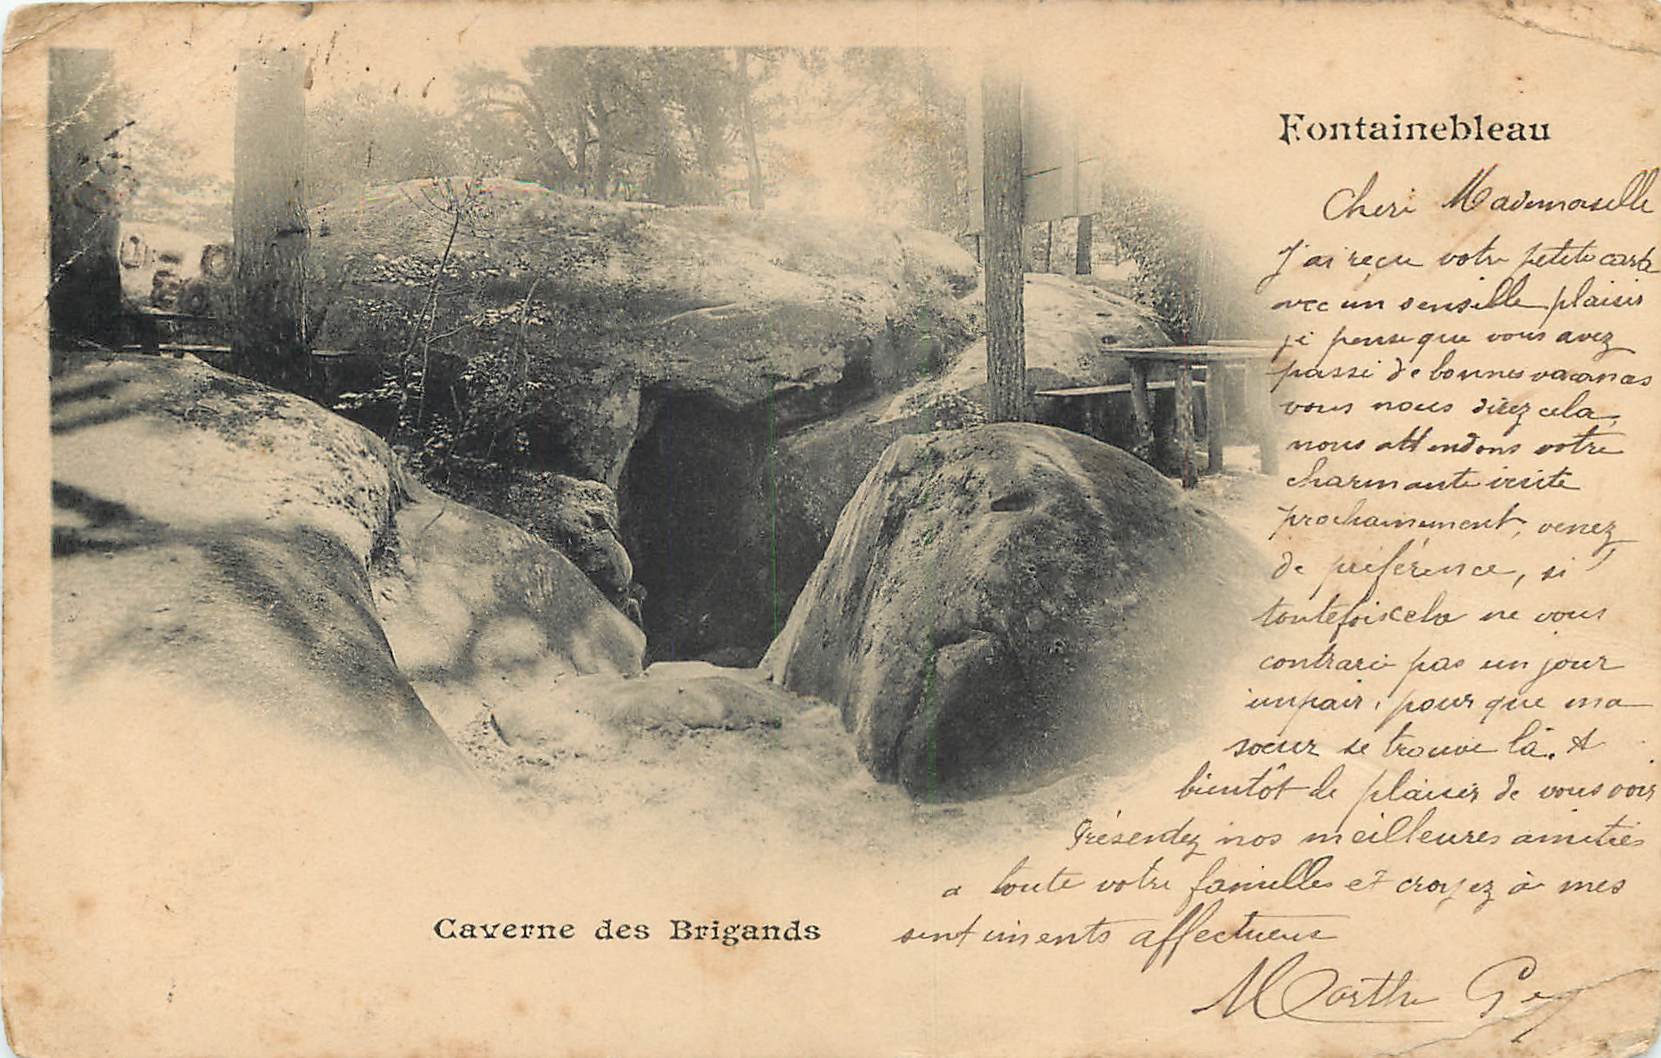 Fontainebleau
Cheri Mademoiselle
J'ai reçu votre petite carte
avec un sensible plaisir
je pense que vous avez
passé de bonnes vacances
vous nous direz cela,
nous attendons votre
charmante visite
prochainement, venez
de préférence, si
toutefois cela ne vous
contrarie pas un jour
impair, pour que ma
soeur se trouve là. A
bientôt le plaisir de vous voir
Présentez nos meilleures amitiés
a toute votre famille et croyez à mes
sentiments affectueux
Marthe
Caverne des Brigands